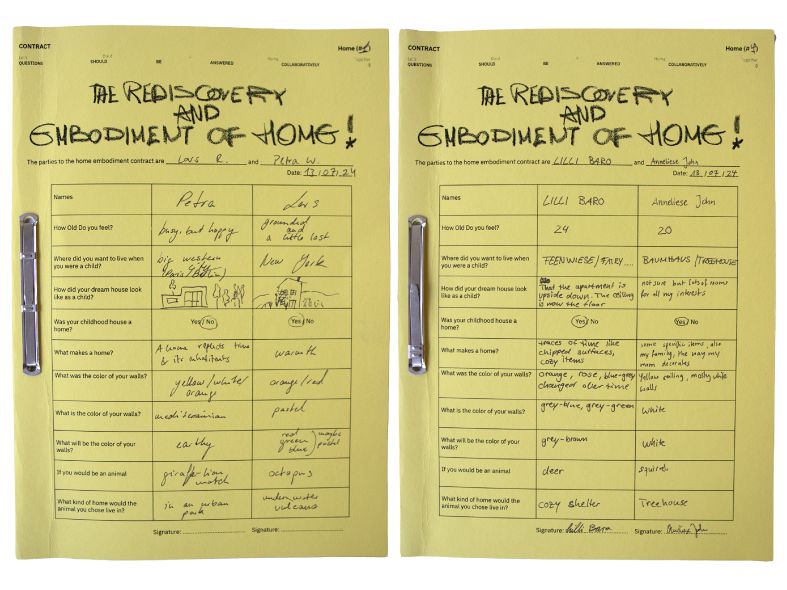 CONTRACT
Home (#1)
QUESTIONS SHOULD BE ANSWERED COLLABORATIVELY
THE REDISCOVERY
AND
EMBODIMENT OF HOME!
The parties to the home embodiment contract are Lars R. and Petra W.
Date: 13/07/24
Names Petra Lars
How Old Do you feel? busy, but happy grounded and a little lost
Where did you want to live when you were a child? big western city (Paris/Berlin) New York
How did your dream house look like as a child?
Was your childhood house a home? Yes/No Yes/No
What makes a home? A home reflects time & its inhabitants warmth
What was the color of your walls? yellow/white/orange orange/red
What is the color of your walls? mediterainian pastel
What will be the color of your walls? earthy red green blue maybe pastel
If you would be an animal giraffe-lion octopus
What kind of home would the animal you chose live in? in an urban park underwater vulcano
Signature: Signature:
CONTRACT
QUESTIONS SHOULD BE ANSWERED COLLABORATIVELY
THE REDISCOVERY
AND
EMBODIMENT OF HOME!
The parties to the home embodiment contract are LILLI BARO and Anneliese John
Date: 13/07/24
Names LILLI BARO Anneliese John
How Old Do you feel? 24 20
Where did you want to live when you were a child? FEENWIESE/FAIRY.... BAUMHAUS/TREEHOUSE
How did your dream house look like as a child? That the apartment is upside down. The ceiling is now the floor not sure but lots of rooms for all my interests
Was your childhood house a home? Yes/No Yes/No
What makes a home? traces of time like chipped surfaces, cozy items some specific items, also my family, the way my mom decorates
What was the color of your walls? orange, rose, blue-grey changed over time Yellow ceiling, mostly white walls
What is the color of your walls? grey-blue, grey-green white
What will be the color of your walls? grey-brown white
If you would be an animal deer squirrel
What kind of home would the animal you chose live in? cozy shelter Treehouse
Signature: Lilli Baro Signature: